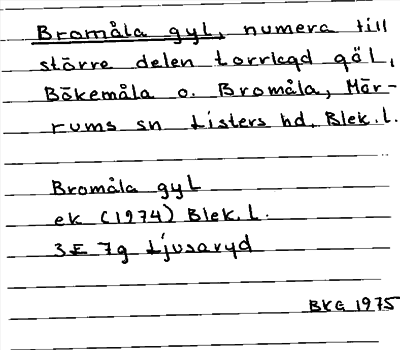 Bromåla gyl, numera till
större delen torrlagd göl,
Bökemåla o. Bromåla, Mör-
rums sn Listers hd, Blek. l.
Bromåla gyl
ek (1974) Blek. l.
3E 7g Ljusaryd
BKG 1975